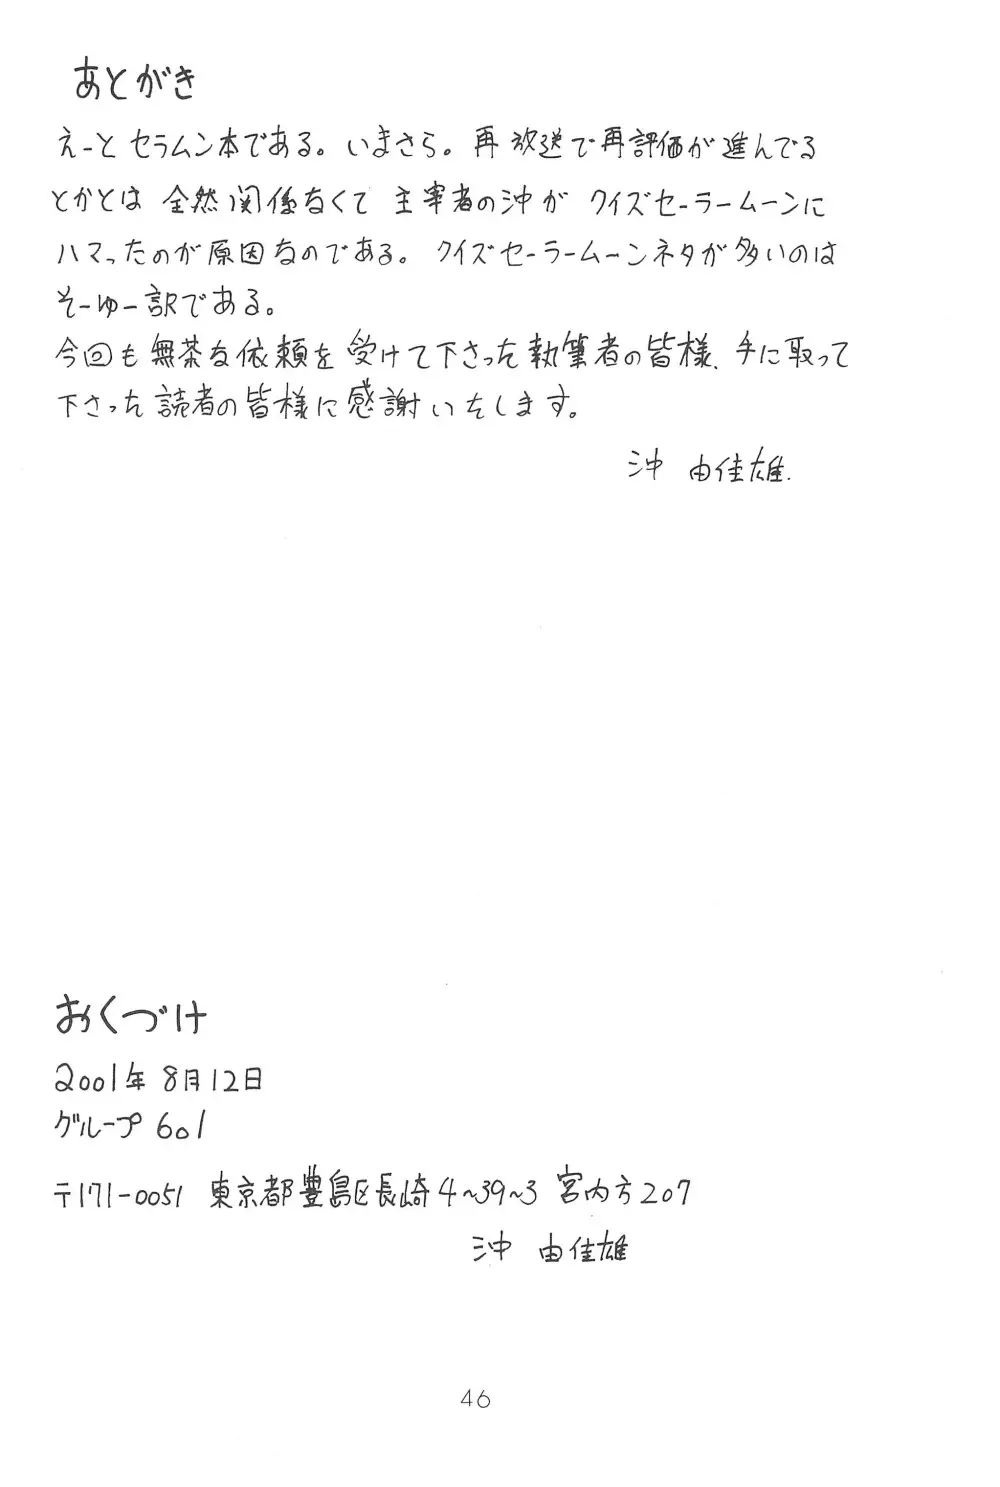 あとがき
えーと セラムン本である。いまさら。再放送で再評価が進んでる
とかとは 全然関係なくて 主宰者の沖が クイズセーラームーンに
ハマったのが原因なのである。クイズセーラームーンネタが多いのは
そーゆー訳である。
今回も無茶な依頼を受けて下さった執筆者の皆様、手に取って
下さった読者の皆様に感謝いたします。
沖 由佳雄.
おくづけ
2001年8月12日
グループ601
〒171-0051 東京都豊島区長崎4~39~3 宮内方207
沖 由佳雄
46